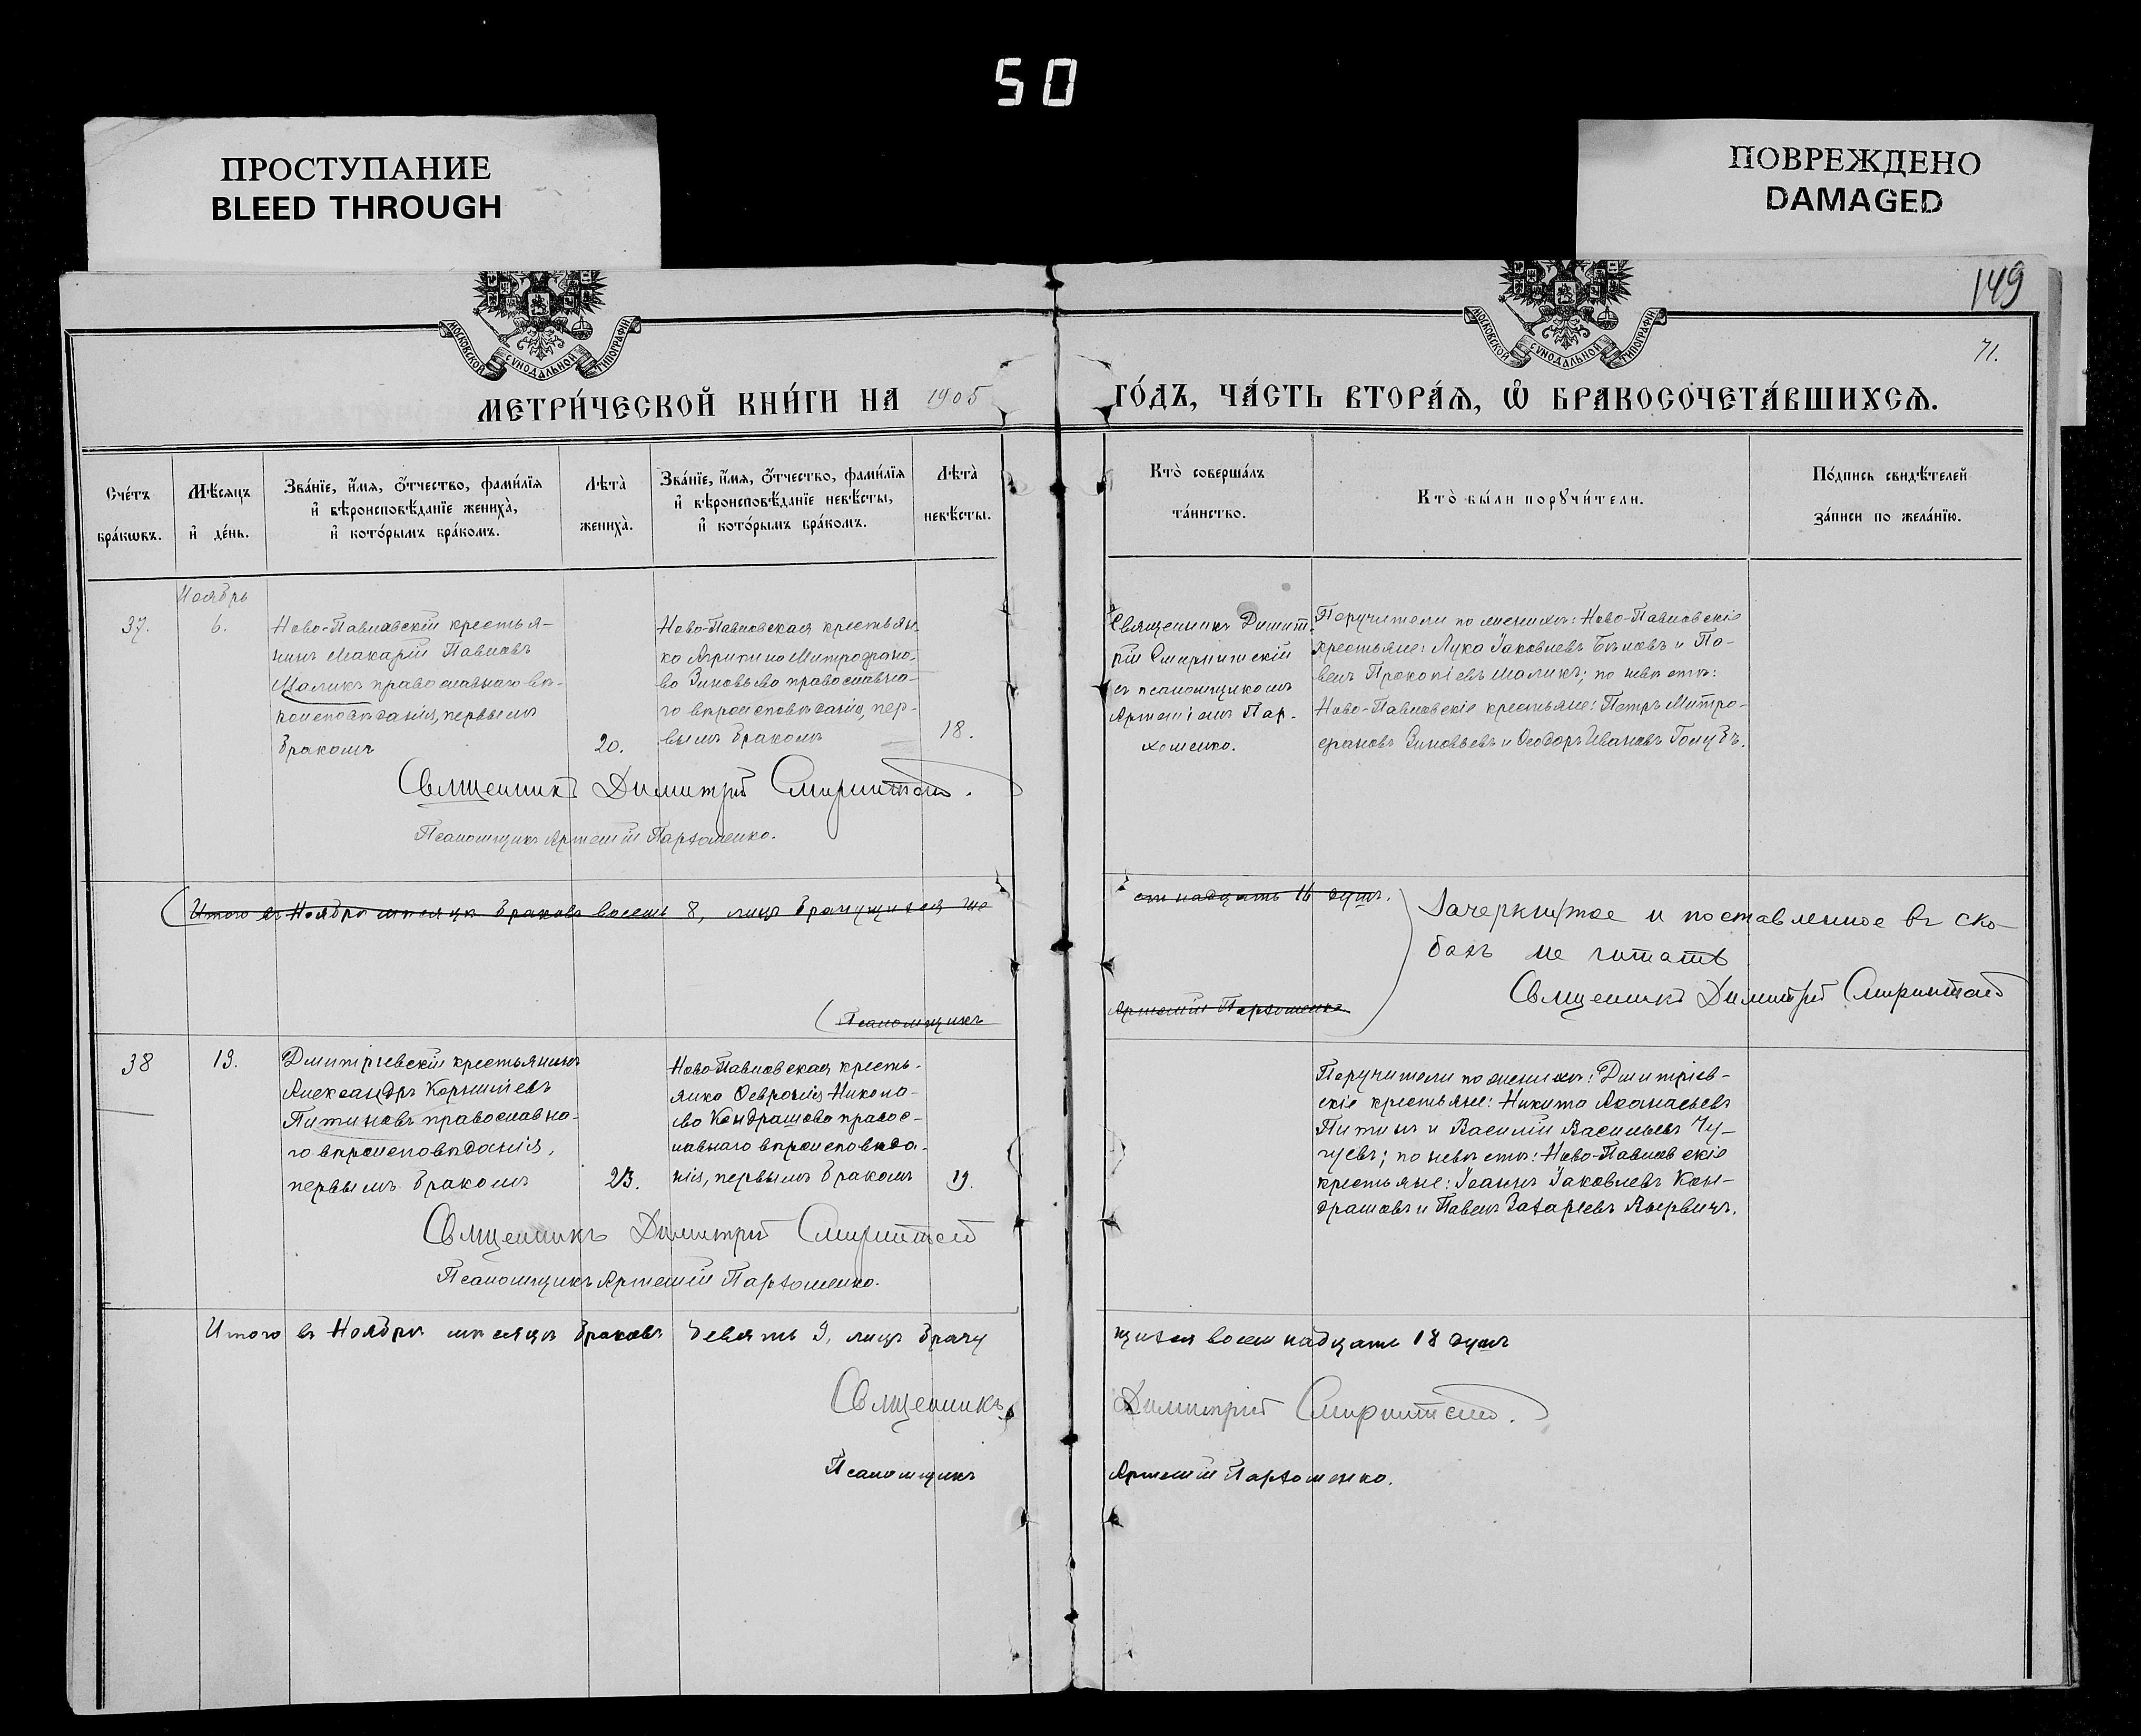 50
ПРОСТУПАНИЕ
BLEED THROUGH
ПОВРЕЖДЕНО
DAMAGED
149
71.
МОСКОВСКОЙ СУНОДАЛЬНОЙ ТИПОГРАФІИ
МОСКОВСКОЙ СУНОДАЛЬНОЙ ТИПОГРАФІИ
МЕТРИ́ЧЕСКОЙ КНИ́ГИ НА 1905
ГО́ДЪ, ЧА́СТЬ ВТОРА́Ѧ, Ѽ БРАКОСОЧЕТА́ВШИХСѦ.
Сче́тъ
бра́кѡвъ.
Мѣ́сѧцъ
и҆ де́нь.
Зва́нїе, и҆́мѧ, ѻ҆́тчество, фами́лїѧ
и҆ вѣроисповѣ́данїе женихà,
и҆ кото́рымъ бра́комъ.
Лѣтà
женихà.
Зва́нїе, и҆́мѧ, ѻ҆́тчество, фами́лїѧ
и҆ вѣроисповѣ́данїе невѣ́сты,
и҆ кото́рымъ бра́комъ.
Лѣтà
невѣ́сты.
Кто̀ соверша́лъ
та́инство.
Кто̀ бы́ли порꙋчи́тели.
По́дпись свидѣ́телей
за́писи по жела́нїю.
Ноябрь
37.
6.
Ново-Павловскій крестья-
нинъ Макарій Павловъ
Шаликъ православнаго вѣ-
роисповѣданія, первымъ
бракомъ
20.
Ново-Павловская крестьян-
ка Агрипина Митрофано-
ва Зиновьева православна-
го вѣроисповѣданія, пер-
вымъ бракомъ
18.
Священникъ Димит-
рій Смирнитскій
съ псаломщикомъ
Артеміемъ Пар-
хоменко.
Поручители по женихѣ: Ново-Павловскіе
крестьяне: Лука Іаковлевъ Бѣловъ и Па-
велъ Прокопіевъ Шаликъ; по невѣстѣ:
Ново-Павловскіе крестьяне: Петръ Митро-
фановъ Зиновьевъ и Ѳеодоръ Ивановъ Голубъ.
Священникъ Димитрій Смирнитскій.
Псаломщикъ Артемій Пархоменко.
(Итого въ Ноябрѣ мѣсяцѣ браковъ восемь 8, лицъ брачущихся ше
стнадцать 16 душъ.)
Зачеркнутое и поставленное въ ско-
бахъ не читать
Священникъ Димитрій Смирнитскій
(Псаломщикъ
Артемій Пархоменко
38
13.
Дмитріевскій крестьянинъ
Александръ Корниліевъ
Питиновъ православна-
го вѣроисповѣданія,
первымъ бракомъ
23.
Ново-Павловская кресть-
янка Ѳевронія Никола-
ева Кондрашова правос-
лавнаго вѣроисповѣда-
нія, первымъ бракомъ
19.
Поручители по женихѣ: Дмитріев-
скіе крестьяне: Никита Аѳанасьевъ
Питинъ и Василій Васильевъ Чу-
гуевъ; по невѣстѣ: Ново-Павловскіе
крестьяне: Іоаннъ Іаковлевъ Кон-
драшовъ и Павелъ Захаріевъ
Священникъ Димитрій Смирнитскій
Псаломщикъ Артемій Пархоменко.
Итого въ Ноябрѣ мѣсяцѣ браковъ девять 9, лицъ брачу
щихся восемнадцать 18 душъ
Священникъ Димитрій Смирнитскій.
Псаломщикъ Артемій Пархоменко.